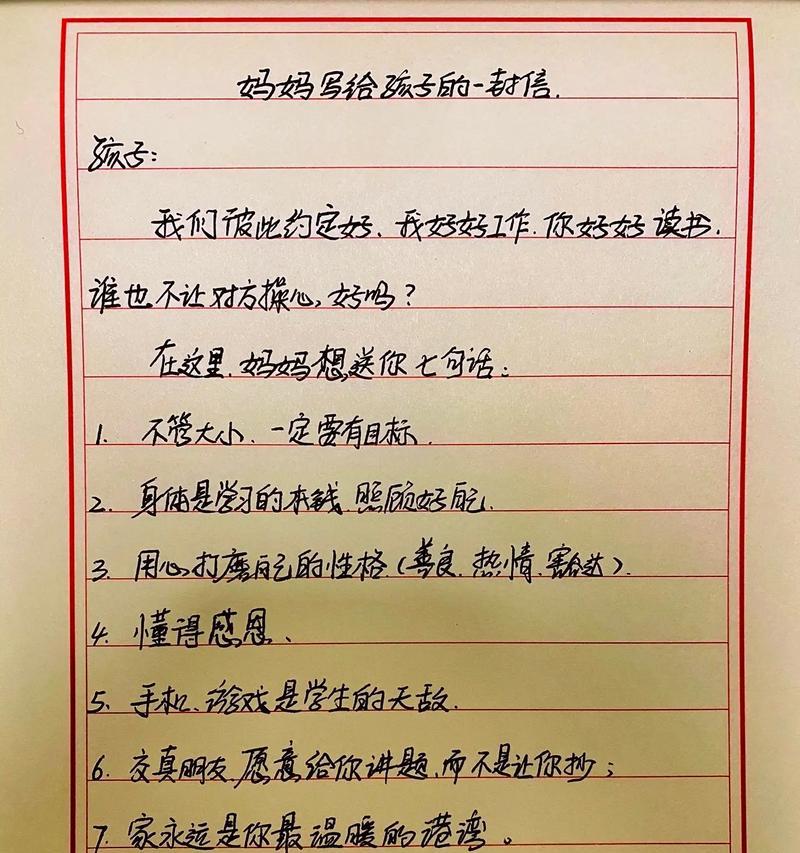 妈妈写给孩子的一封信.
孩子:
我们彼此约定好、我好好工作.你好好读书.
谁也不让对方操心,好吗?
在这里.妈妈想送你七句话:
1. 不管大小、一定要有目标.
2. 身体是学习的本钱.照顾好自己.
3. 用心打磨自己的性格.(善良.热情.豁达).
4. 懂得感恩、
5. 手机、游戏是学生的天敌.
6. 交真朋友,愿意给你讲题,而不是让你抄;
7. 家永远是你最温暖的港湾。